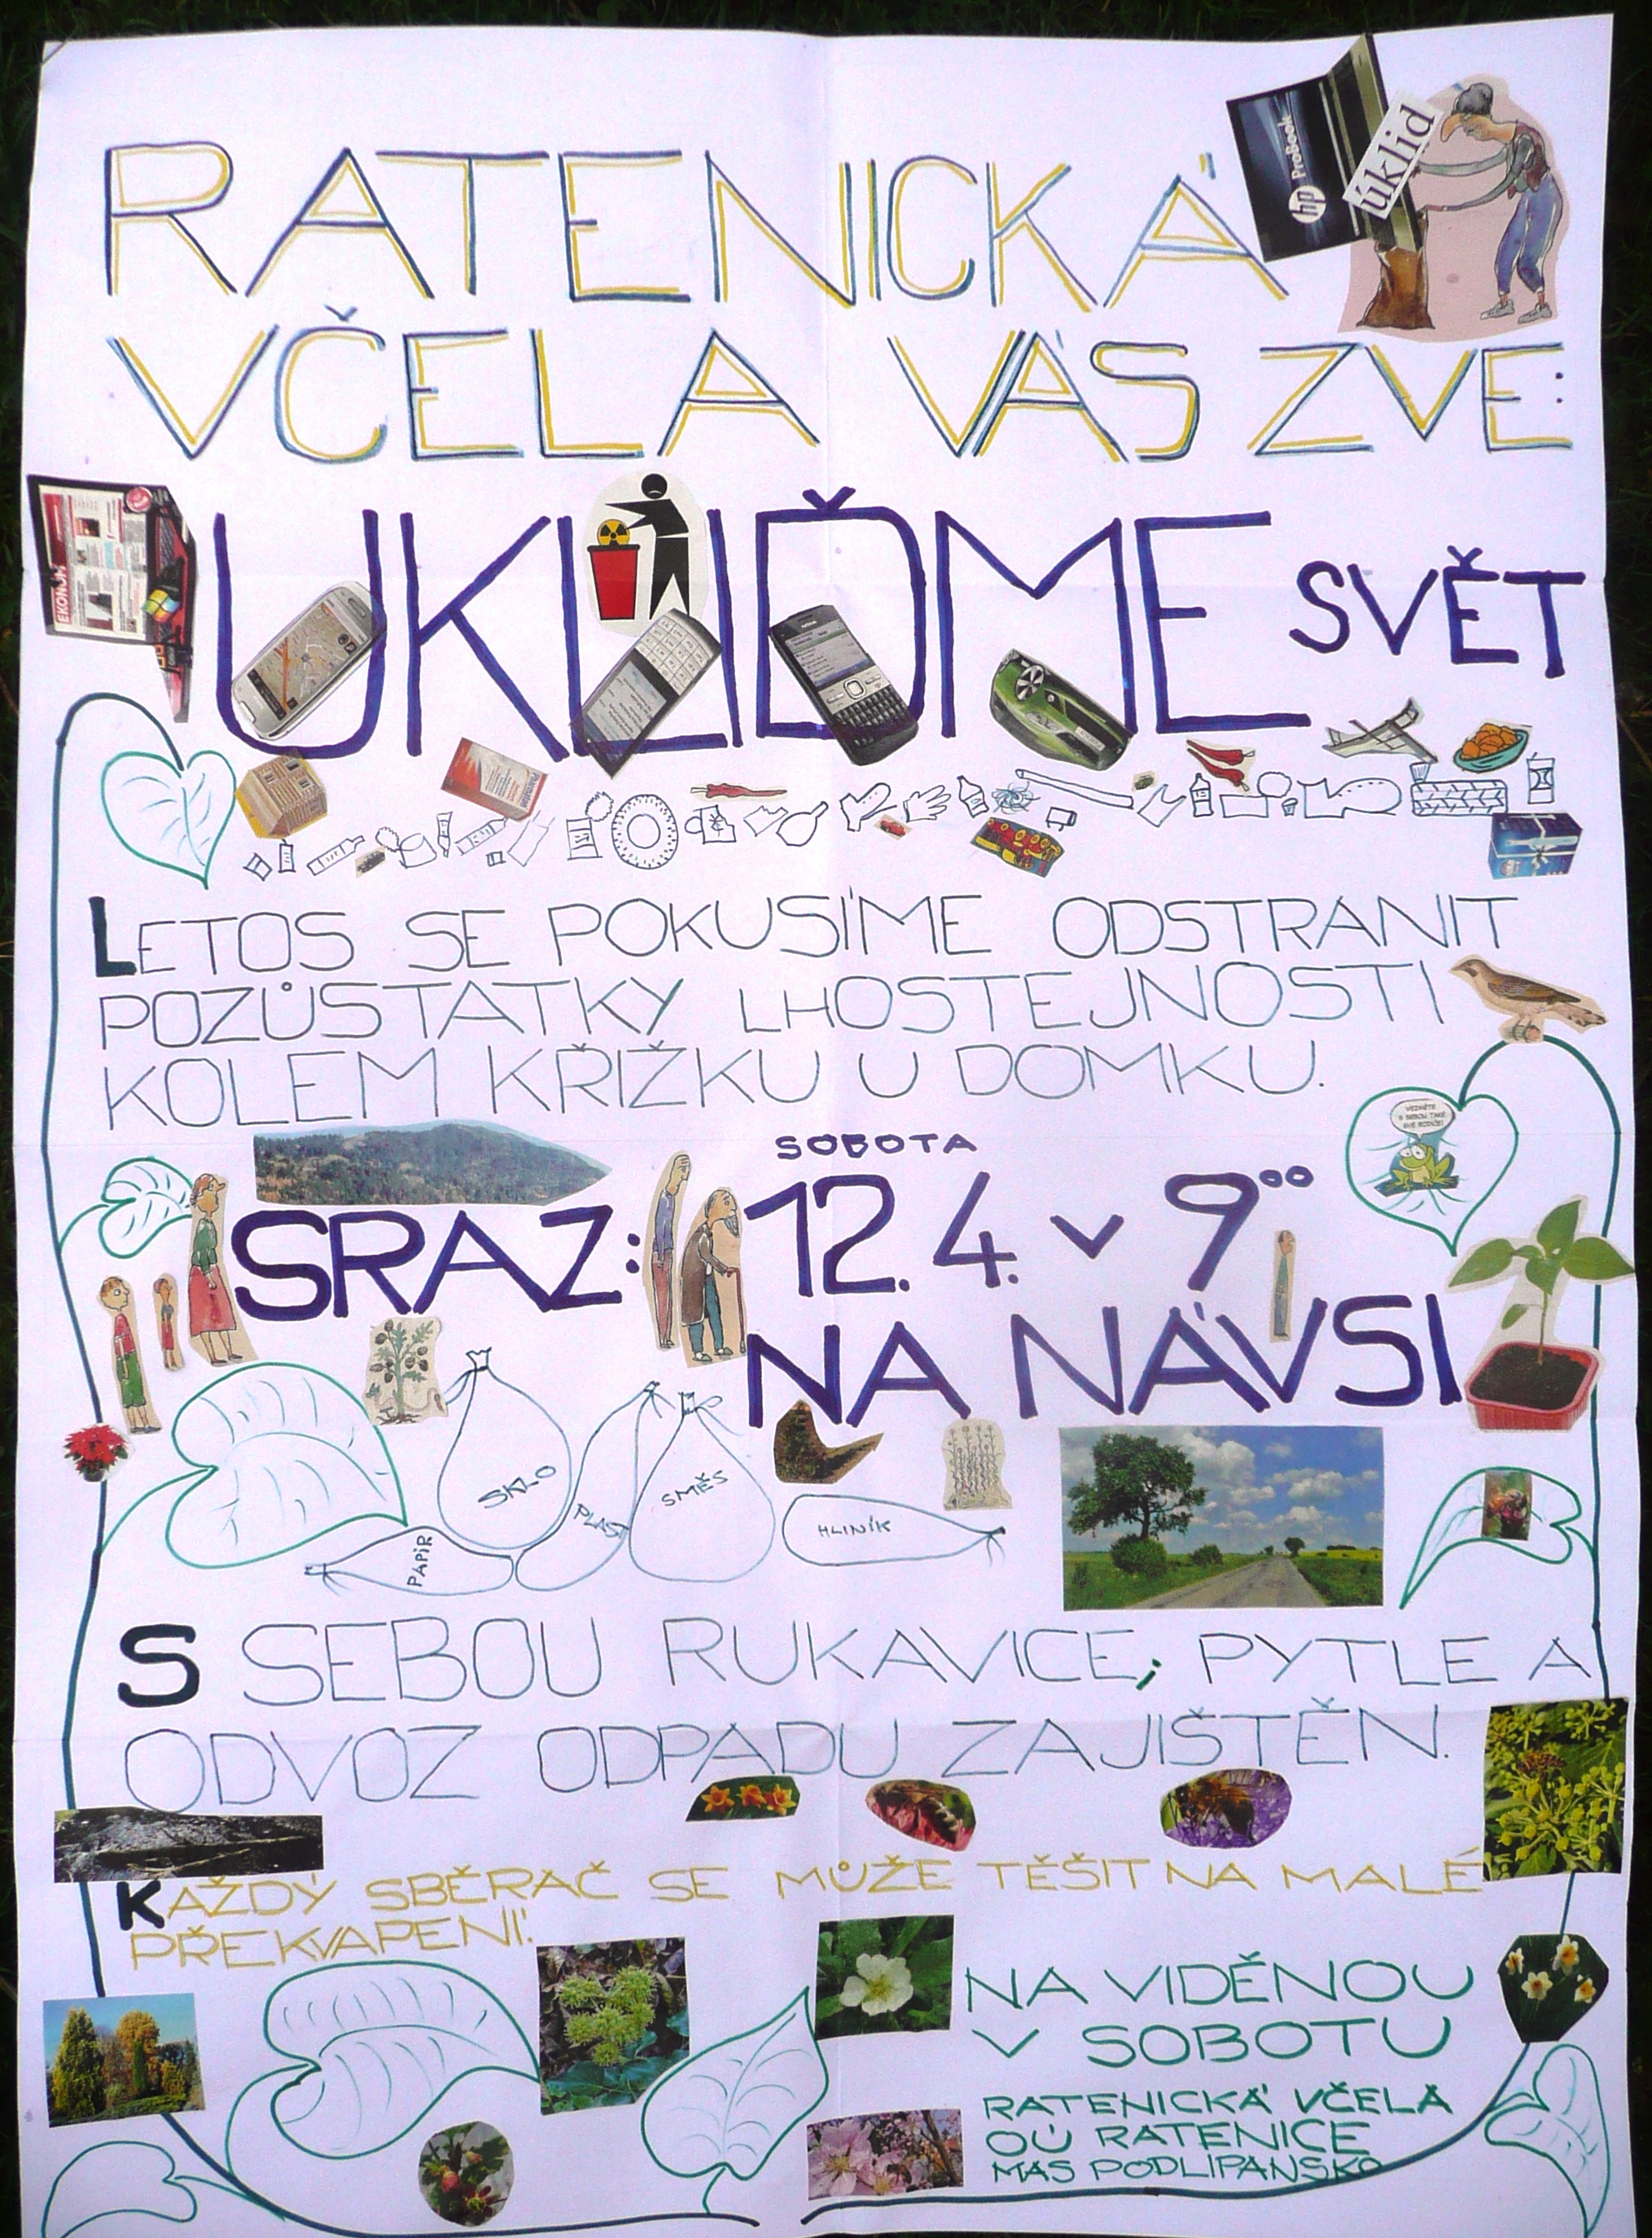 RATENICKÁ
hp ProBook
úklid
VČELA VÁS ZVE:
EKONOM
UKLIĎME SVĚT
LETOS SE POKUSÍME ODSTRANIT
POZŮSTATKY LHOSTEJNOSTI
KOLEM KŘÍŽKU U DOMKU.
VEZMĚTE
S SEBOU TAKÉ
SVÉ RODIČE!
SOBOTA
SRAZ: 12. 4. v 9⁰⁰
NA NÁVSI
SKLO
PLAST
SMĚS
PAPÍR
HLINÍK
S SEBOU RUKAVICE; PYTLE A
ODVOZ ODPADU ZAJIŠTĚN.
KAŽDÝ SBĚRAČ SE MŮŽE TĚŠIT NA MALÉ
PŘEKVAPENÍ.
NA VIDĚNOU
V SOBOTU
RATENICKÁ VČELA
OÚ RATENICE
MAS PODLIPANSKO